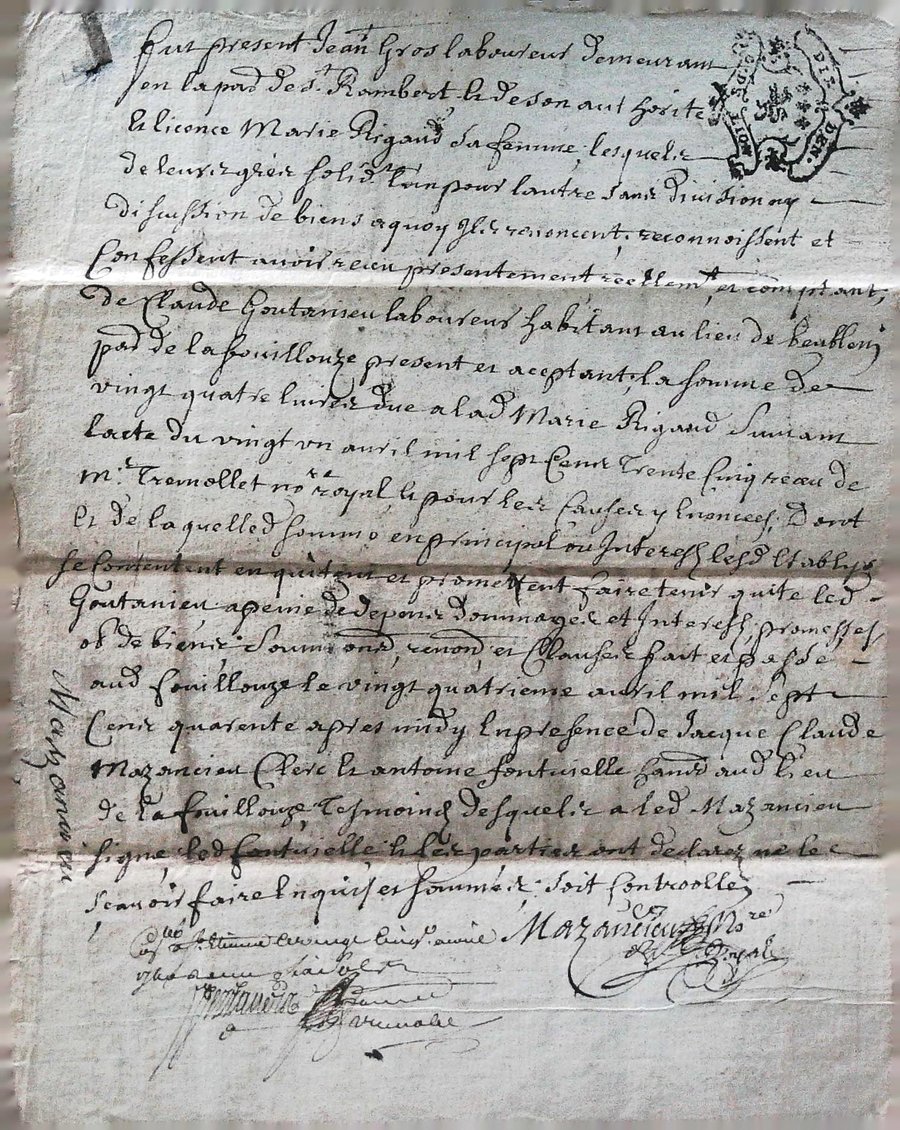 fut present Jean Gros laboureur demeurant
en la par de St Rambert & de son authorite
& licence Marie Rigaud sa femme, lesquels
de leurs grés solidt lun pour lautre sans division ny
discussion de biens a quoy ils renoncent, reconnoissent et
Confessent avoir receu presentement reellemt et comptant,
de Claude Goutanieu laboureur habitant au lieu de
par de la fouillouze present et aceptant, la somme de
vingt quatre livres due a lad Marie Rigaud Suivant
lacte du vingt un avril mil sept Cens Trente Cinq receu de
Mr Tremollet nore royal & pour les Causes y Enoncees, Dont
Et de laquelled somme en principal ou Interests lesd Etablys
se contentent en quitent et promettent faire tenir quite led
Goutanieu a peine de depens dommages et Interests, promesses
ob de biens Soumiond, renond, et Clauses fait et passé
aud fouillouze le vingt quatrieme avril mil Sept
Cens quarente apres midy En presence de Jacque Claude
Mazancieu Clerc & antoine fontvielle hands aud lieu
de la fouillouze Tesmoins desquels a led Mazancieu
signé, led fontvielle & les parties ont declarez ne le
scavoir faire Enquis et sommés: soit Controollé
Mazancieu Nore
Royal
Mazancieu
DIX DEN.